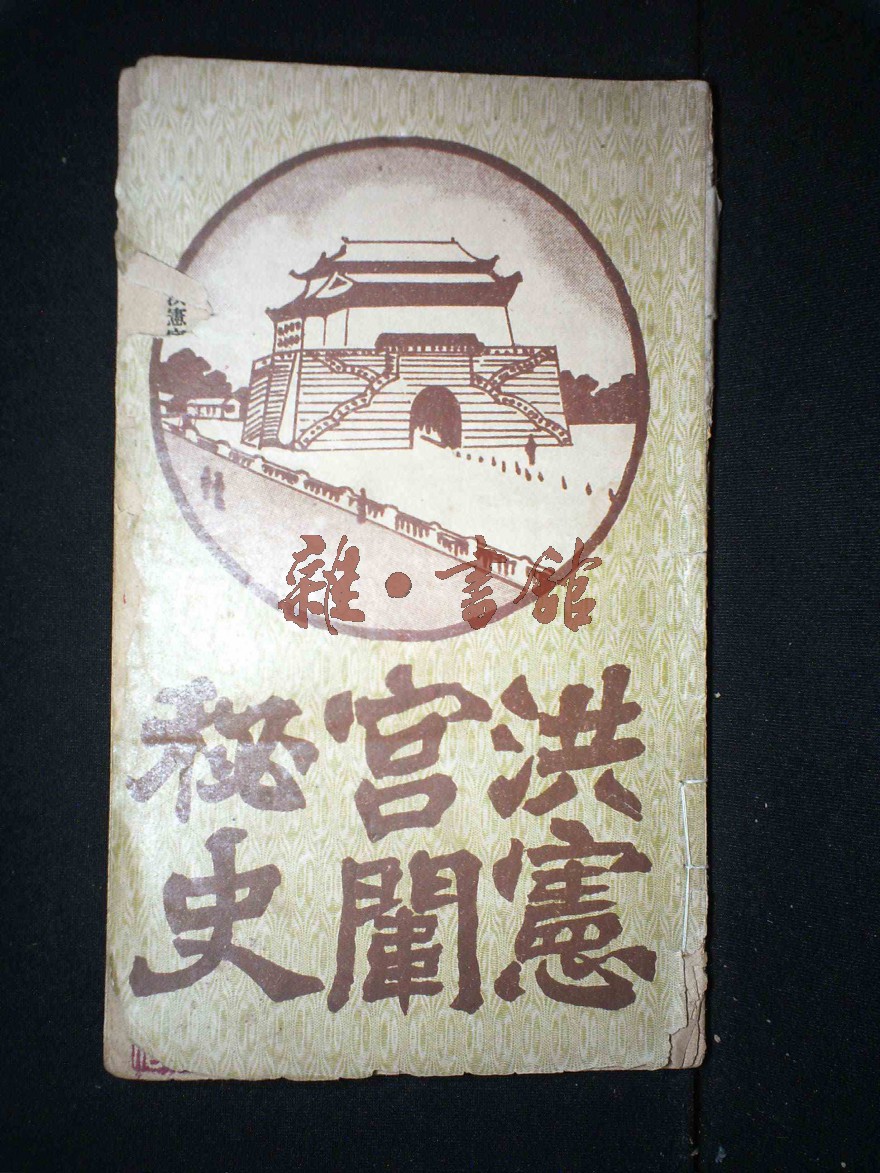 憲
雜・書館
洪憲
宮闈
秘史